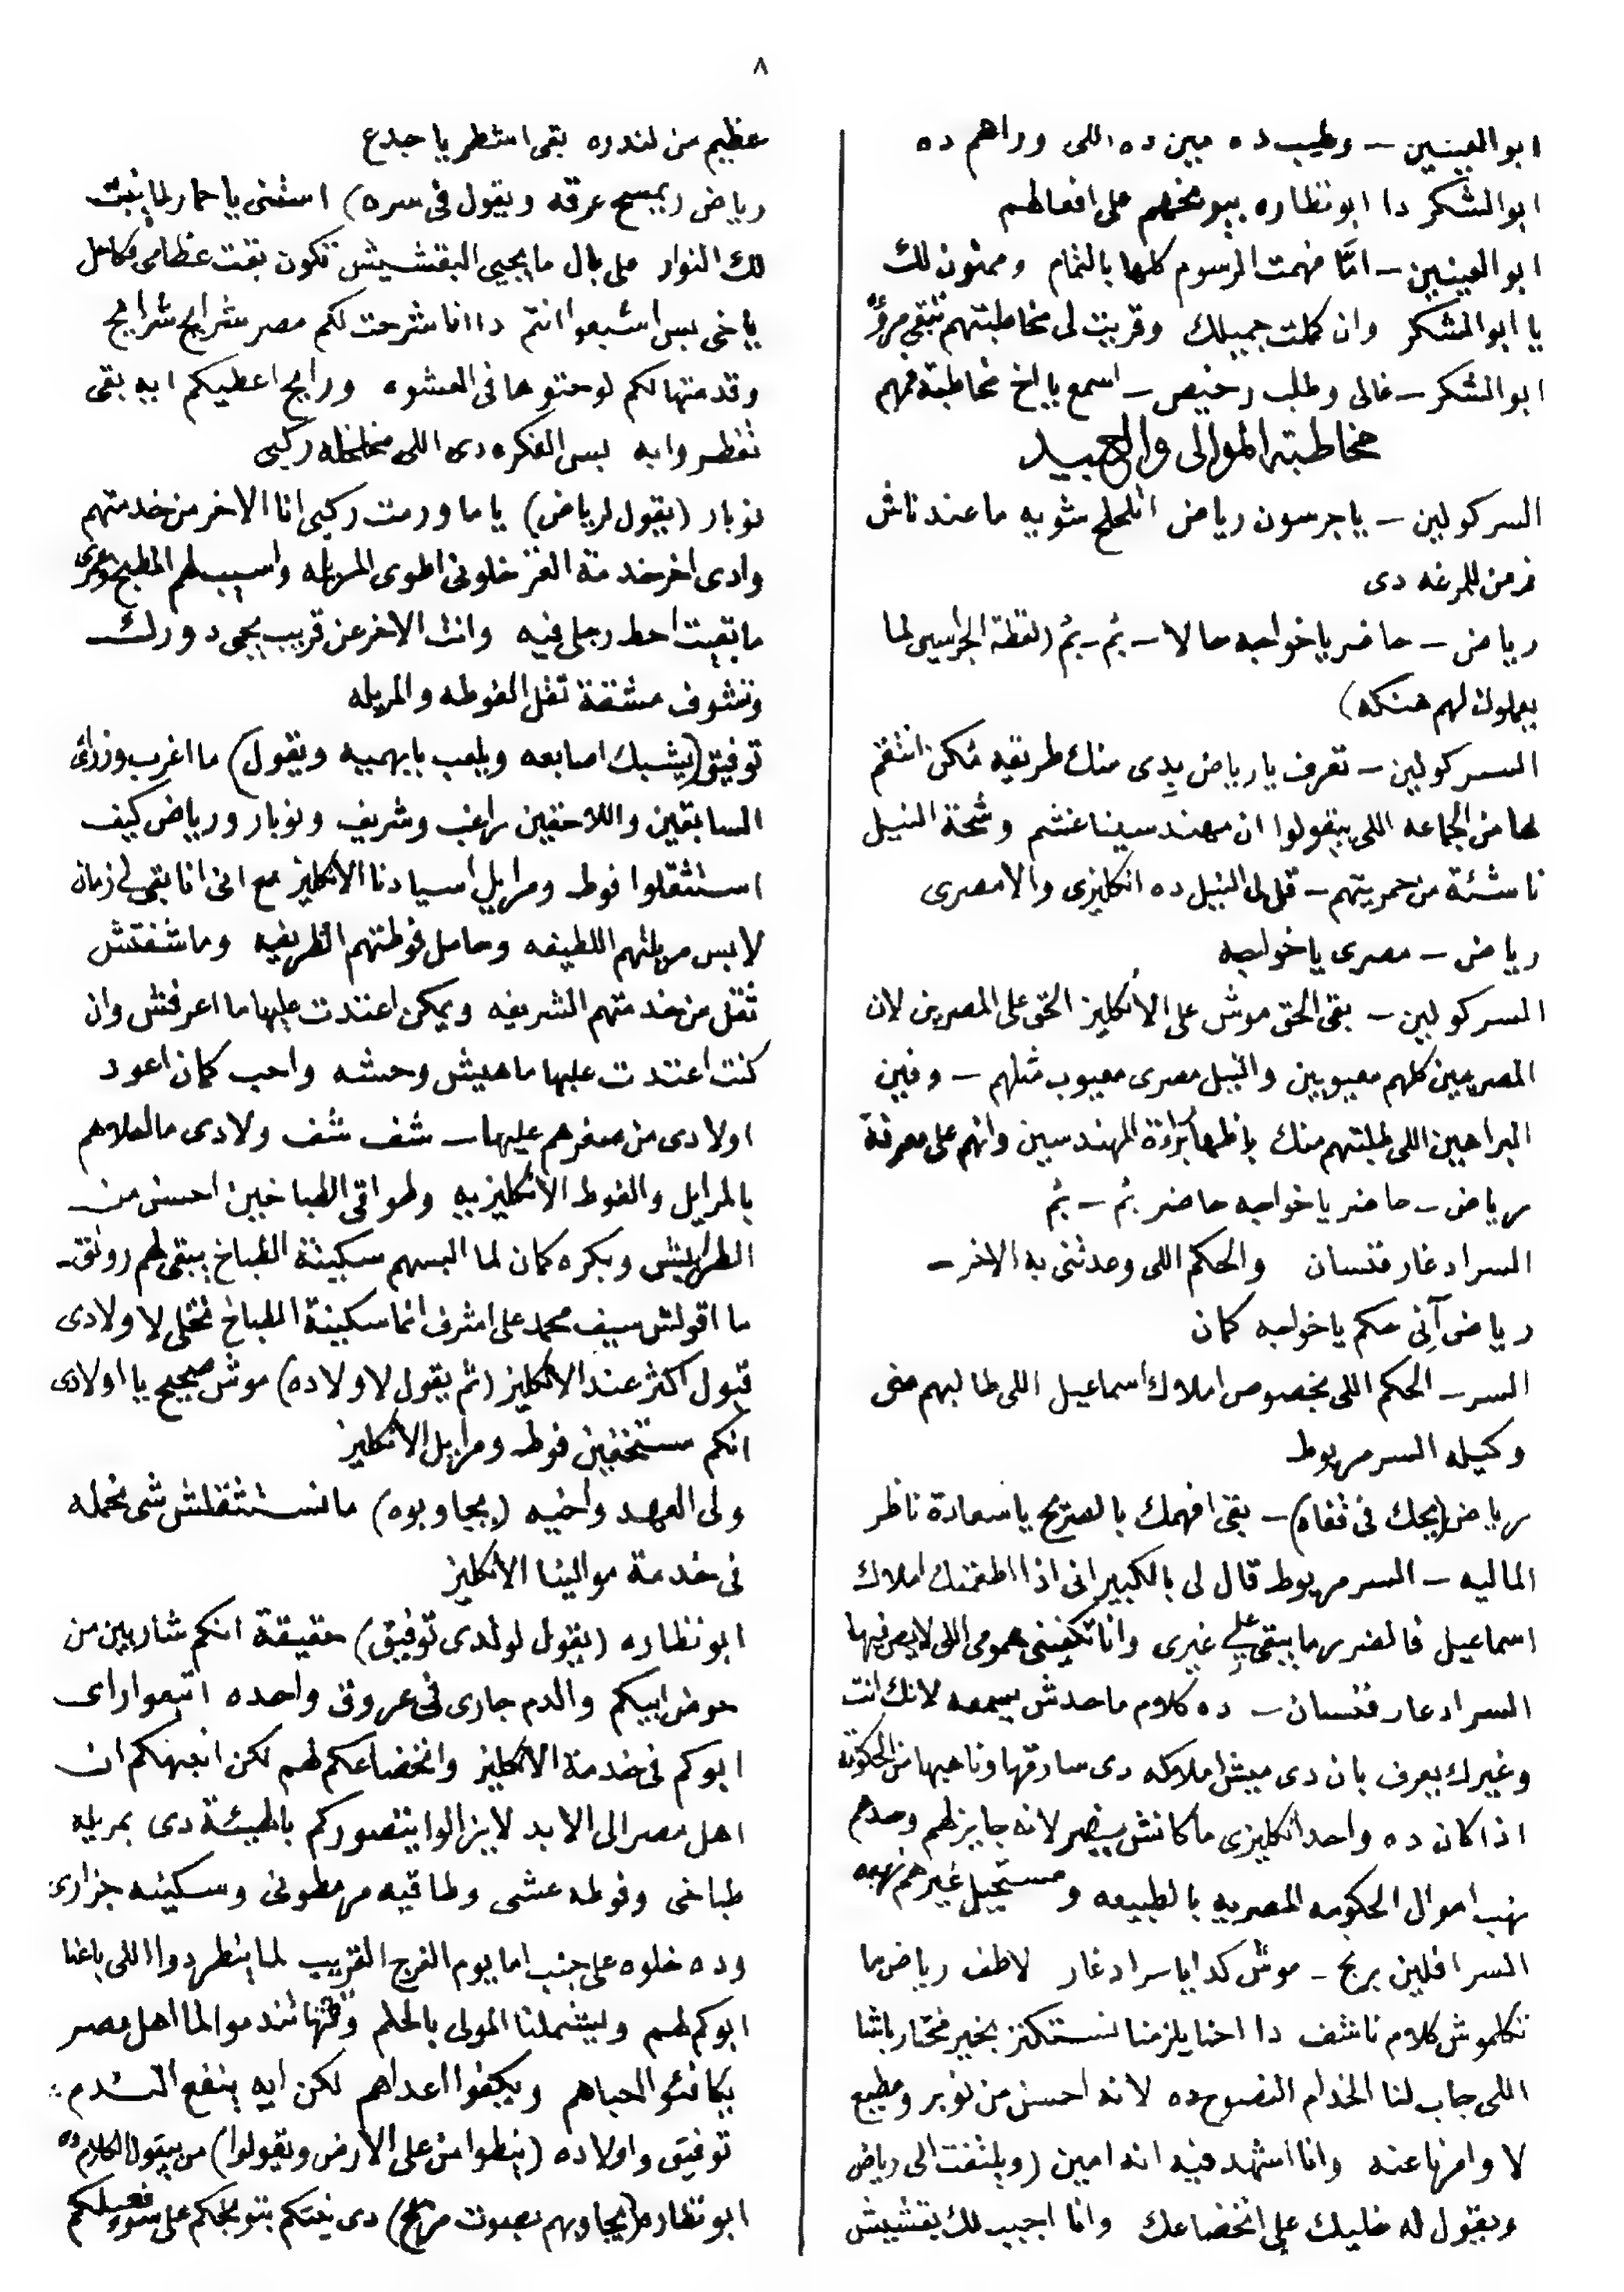 ٨
ابو العينين – وطيب ده مين ده اللى وراهم ده
ابو الشكر دا ابو نظاره بيوبخهم على افعالهم
ابو العينين – امّا فهمت الرسوم كلها بالتمام وممنون لك
يا ابو الشكر وان كملت جميلك وقريت لى مخاطبتهم تبقى مروّه
ابو الشكر – غالى وطلب رخيص – اسمع يا اخ مخاطبة فهم
مخاطبة الموالى والعبيد
السر كولين – يا جرسون رياض اتلحلح شويه ما عندناش
فرمن للمرغه دى
رياض – حاضر يا خواجه حالا – بُم – بُم (لفظة الجراسين لما
يعملوا لهم هنكه)
السر كولين – تعرف يا رياض بِدِى منك طريقه ممكن انتقم
لها من الجماعه اللى بيقولوا ان مهندسينا غشم وشحة النيل
ناشئة من حمريتهم – قل لى النيل ده انكليزى والا مصرى
رياض – مصرى يا خواجه
السر كولين – بقى الحق موش على الانكليز الحق على المصريين لان
المصريين كلهم معيوبين والنيل مصرى معيوب مثلهم – وفين
البراهين اللى طلبتهم منك باظهار براءة المهندسين وانهم على معرفة
رياض – حاضر يا خواجه حاضر بُم – بُم
السر ادغار فنسان والحكم اللى وعدتنى به الاخر –
رياض آنِى حكم يا خواجه كمان
السر – الحكم اللى بخصوص املاك اسماعيل اللى طالبهم منى
وكيله السر مريوط
رياض (يحك فى قفاه) – بقى افهمك بالصريح يا سعادة ناظر
الماليه – السر مريوط قال لى بالكبير انى اذا اطقمتك املاك
اسماعيل فالضرر ما يبقى على غيرى وانا تكفينى همومى اللى لايص فيها
السر ادغار فنسان – ده كلام ما حدش يسمعه لانك انت
وغيرك يعرف بان دى ميش املاكه دى سارقها وناهبها من الحكومه
اذا كان ده واحد انكليزى ما كانش يضر لانه جايز لهم وحدهم
نهب اموال الحكومه المصريه بالطبيعه ومستحيل غيرهم نهبه
السر افلين برنج – موش كدا يا سر ادغار لاطف رياض ما
تكلموش كلام ناشف دا احنا يلزمنا نستكتر بخير مختار باشا
اللى جاب لنا الخدام النصوح ده لانه احسن من نوبر ومطيع
لا وامرنا عنه وانا اشهد فيه انه امين (ويلتفت الى رياض
ويقول له خليك على اتخضاعك وانا اجيب لك بقشيش
عظيم من لندره بقى اشطر يا جدع
رياض (يمسح عرقه ويقول فى سره) استنى يا حمار لما ينبت
لك النوار على بال ما يجيى البقشيش تكون بقت عظامى مكاحل
يا خى بس اشبعوا انتم دا انا شرحت لكم مصر شرايح شرايح
وقدمتها لكم لوحتوها فى العشوه ورايح اعطيكم ايه بقى
تفطروا به بس الفكره دى اللى مخلخله ركبى
نوبار (يقول لرياض) ياما ورمت ركبى انا الاخر من خدمتهم
وادى اخر خدمة الغز خلونى اطوى المريله واسيب لهم المطبخ وعمرى
ما بقيت احط رجلى فيه وانت الاخر عن قريب يجى دورك
وتشوف مشقة تقل الفوطه والمريله
توفيق (يشبك اصابعه ويلعب بابهميه ويقول) ما اغرب وزرائى
السابقين واللاحقين راغب وشريف ونوبار ورياض كيف
استثقلوا فوط ومرايل اسيادنا الانكليز مع انى انا بقى لى زمان
لابس مريلتهم اللطيفه وحامل فوطتهم الظريفه وما شفتش
تقل من خدمتهم الشريفه ويمكن اعتدت عليها ما اعرفش وان
كنت اعتدت عليها ما هيش وحشه واحب كمان اعود
اولادى من صغرهم عليها – شف شف ولادى ما احلاهم
بالمرايل والفوط الانكليزيه وطواقى الطباخين احسن من
الطرابيش وبكره كمان لما البسهم سكينة الطباخ يبقى لهم رونق –
ما اقولش سيف محمد على اشرف انما سكينة الطباخ تخلى لاولادى
قبول اكثر عند الانكليز (ثم يقول لاولاده) موش صحيح يا اولادى
انكم مستخفين فوط ومرايل الانكليز
ولى العهد واخيه (يجاوبوه) ما نستثقلش شى نحمله
فى خدمة موالينا الانكليز
ابو نظاره (يقول لولدى توفيق) حقيقة انكم شاربين من
حوض ابيكم والدم جارى فى عروق واحده اتبعوا راى
ابوكم فى خدمة الانكليز وانخضاعكم لهم لكن انبهكم ان
اهل مصر الى الابد لا يزالوا يتصوركم بالهيئة دى بمريله
طباخى وفوطه عشى وطاقيه مرمطونى وسكينه جزارى
وده خلوه على جنب اما يوم الفرج القريب لما ينطردوا اللى باعنا
ابوكم لهم ويشملنا المولى بالحلم وقتها تندموا لما اهل مصر
يكافئوا احباهم ويكفوا اعداهم لكن ايه ينفع الندم
توفيق واولاده (ينطوا من على الارض ويقولوا) من بيقول الكلام ده
ابو نظاره (يجاوبهم بصوت مزعج) دى ذمتكم بتوبخكم على سوء فعلكم